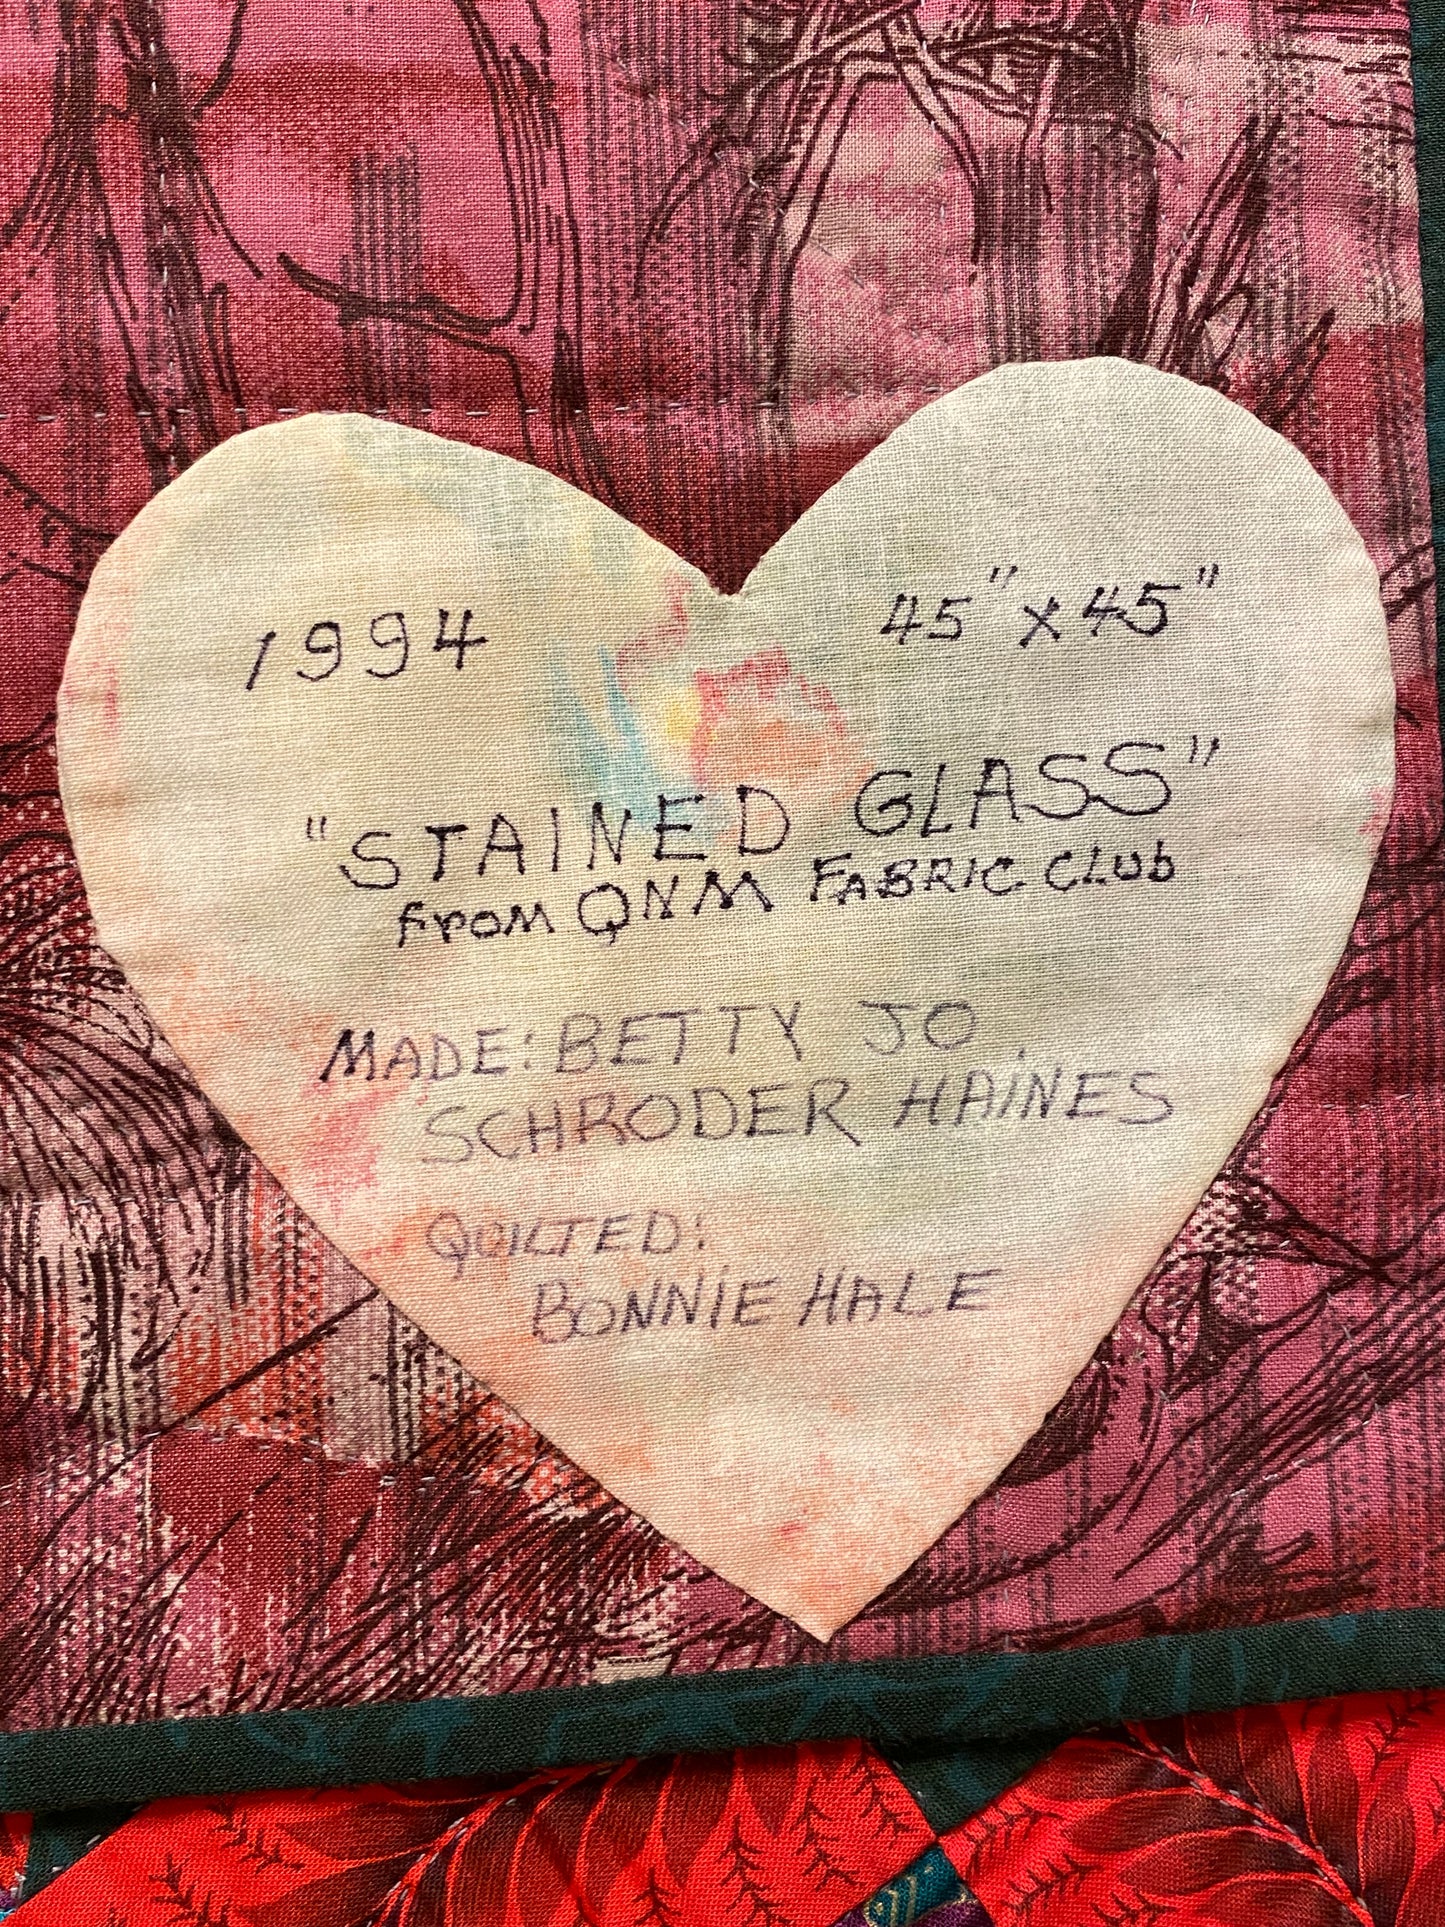 1994 45" x 45"
"STAINED GLASS"
FROM QNM FABRIC CLUB
MADE: BETTY JO
SCHRODER HAINES
QUILTED:
BONNIE HALE